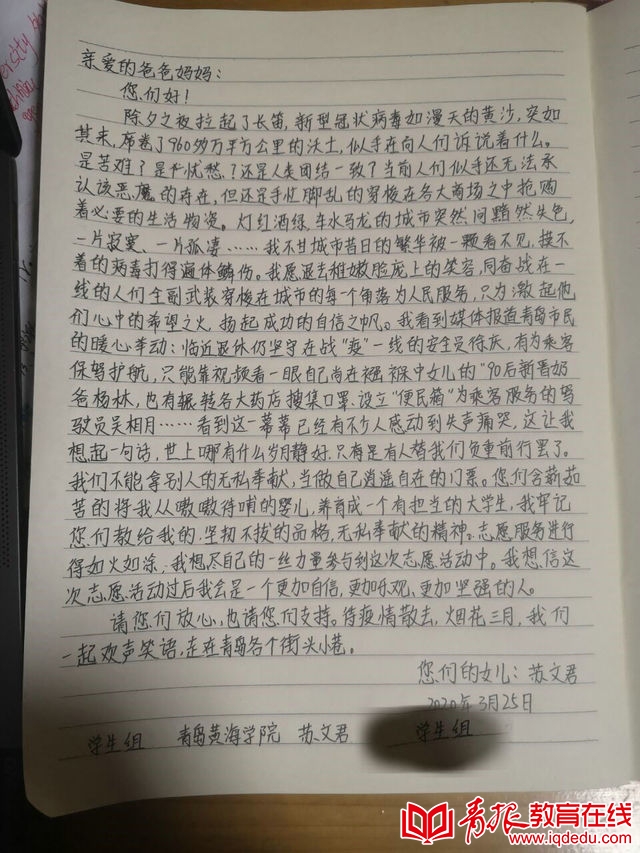 亲爱的爸爸妈妈：
您们好！
除夕之夜拉起了长笛，新型冠状病毒如漫天的黄沙，突如
其来，席卷了960多万平方公里的沃土，似乎在向人们诉说着什么。
是苦难？是忧愁？还是人类团结一致？当前人们似乎还无法承
认该恶魔的存在，但还是手忙脚乱的穿梭在各大商场之中抢购
着必要的生活物资。灯红酒绿、车水马龙的城市突然间黯然失色，
一片寂寞、一片孤凄……我不甘城市昔日的繁华被一颗看不见，摸不
着的病毒打得遍体鳞伤。我愿退去稚嫩脸庞上的笑容，同奋战在一
线的人们全副武装穿梭在城市的每个角落为人民服务，只为激起他
们心中的希望之火，扬起成功的自信之帆。我看到媒体报道青岛市民
的暖心举动：临近退休仍坚守在战“疫”一线的安全员徐庆，有为乘客
保驾护航，只能靠视频看一眼自己尚在襁褓中女儿的“90后新晋奶
爸杨林，也有辗转各大药店搜集口罩、设立“便民箱”为乘客服务的驾
驶员吴相月……看到这一幕幕已经有不少人感动到失声痛哭，这让我
想起一句话，世上哪有什么岁月静好，只有是有人替我们负重前行罢了。
我们不能拿别人的无私奉献，当做自己逍遥自在的门票。您们含薪茹
苦的将我从嗷嗷待哺的婴儿，养育成一个有担当的大学生，我牢记
您们教给我的，坚韧不拔的品格，无私奉献的精神。志愿服务进行
得如火如涂，我想尽自己的一丝力量参与到这次志愿活动中。我想信这
次志愿活动过后我会是一个更加自信，更加乐观、更加坚强的人。
请您们放心，也请您们支持。待疫情散去，烟花三月，我们
一起欢声笑语，走在青岛各个街头小巷。
您们的女儿：苏文君
2020年3月25日
学生组 青岛黄海学院 苏文君 学生组
青报教育在线
www.iqdedu.com